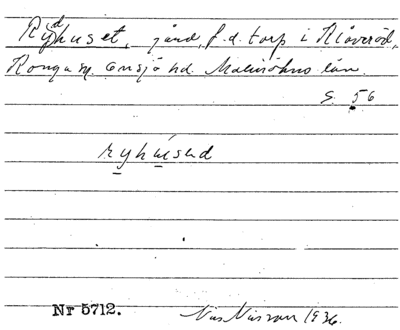 Rydhuset, gård, f.d. torp i Klöveröd,
Konga sn. Onsjö hd. Malmöhus län.
S. 56
ryhúsəd
Nr 5712. Nils Nilsson 1936.